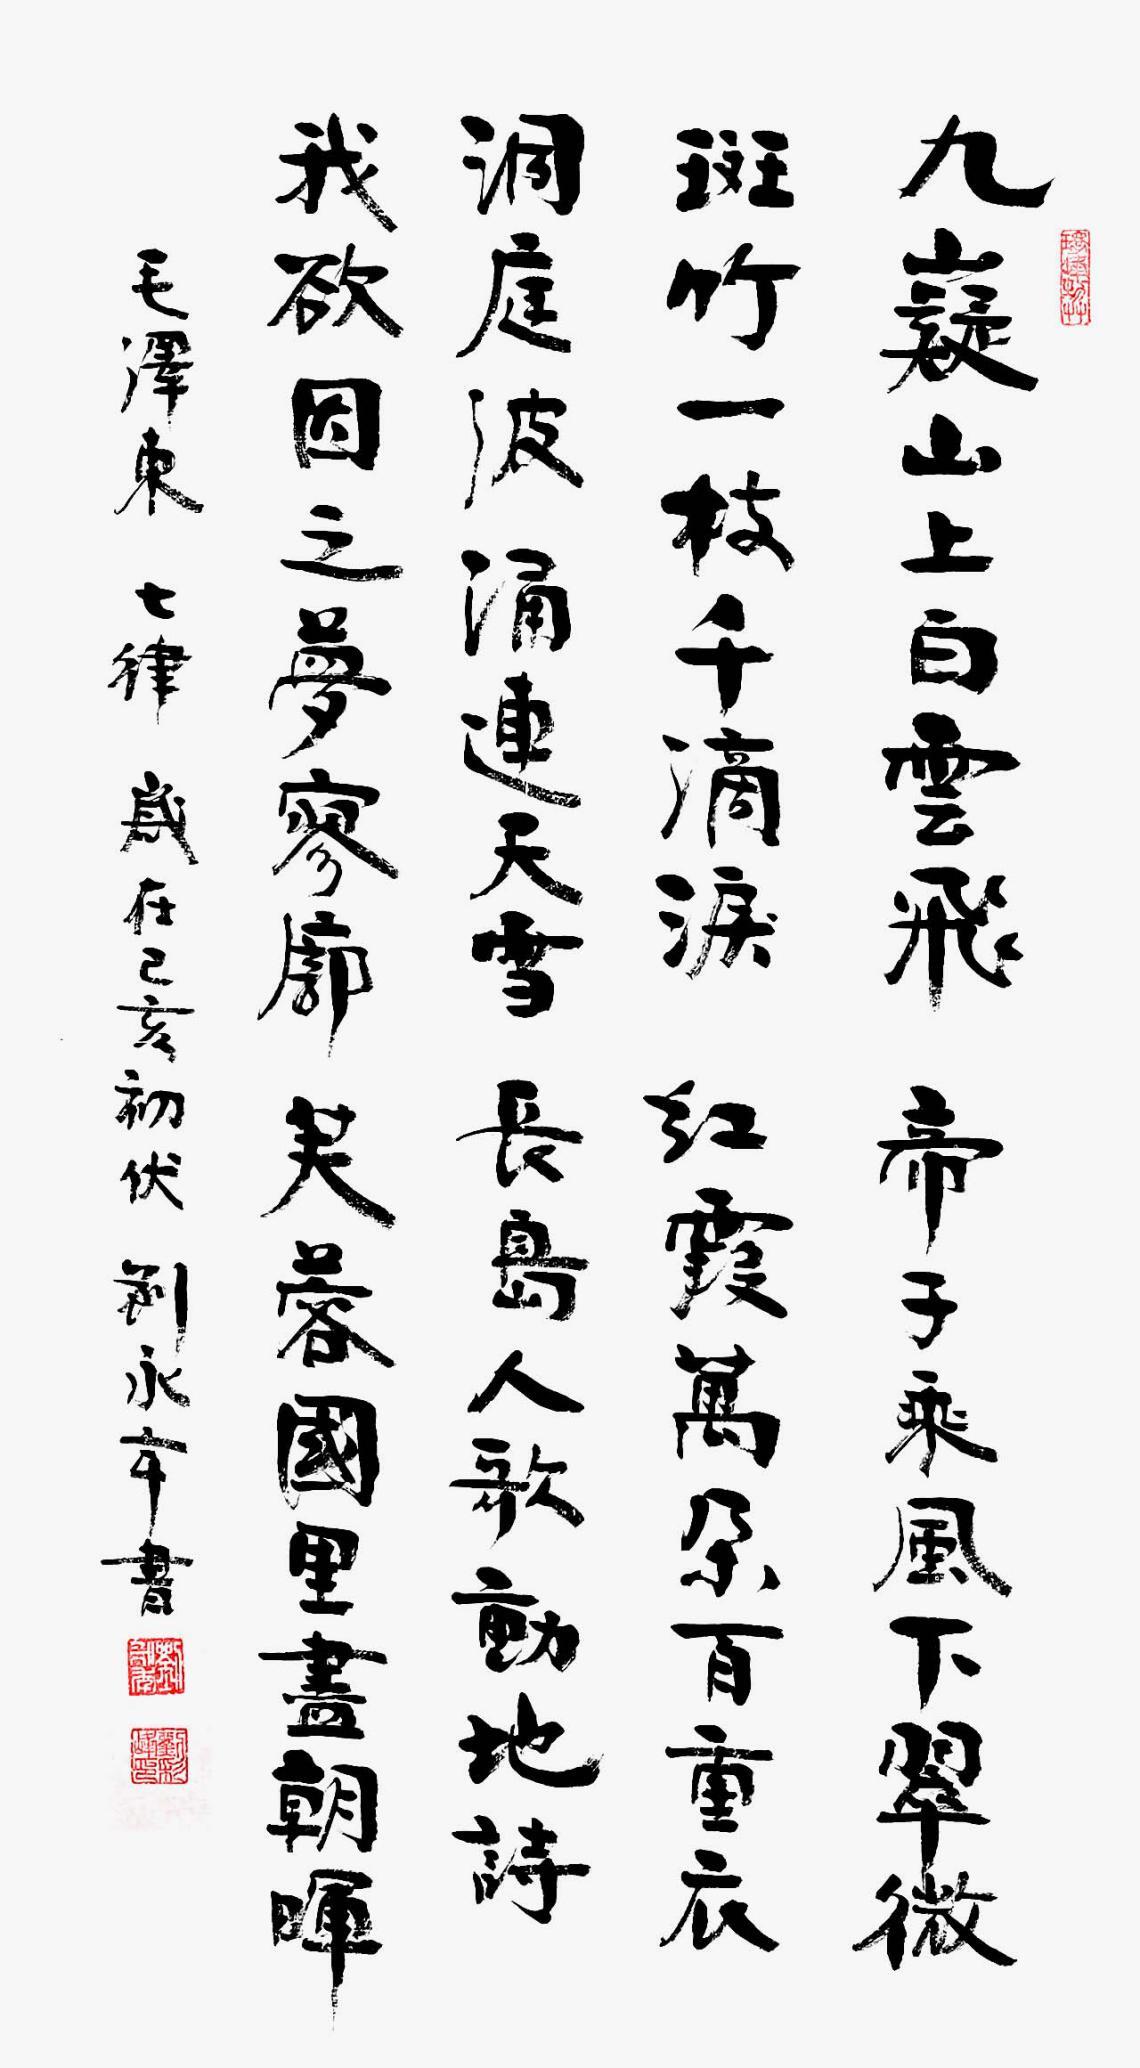 九嶷山上白雲飛 帝子乘風下翠微
斑竹一枝千滴淚 紅霞萬朵百重衣
洞庭波涌連天雪 長島人歌動地詩
我欲因之夢寥廓 芙蓉國里盡朝暉
毛澤東 七律 歲在己亥初伏 劉永年書